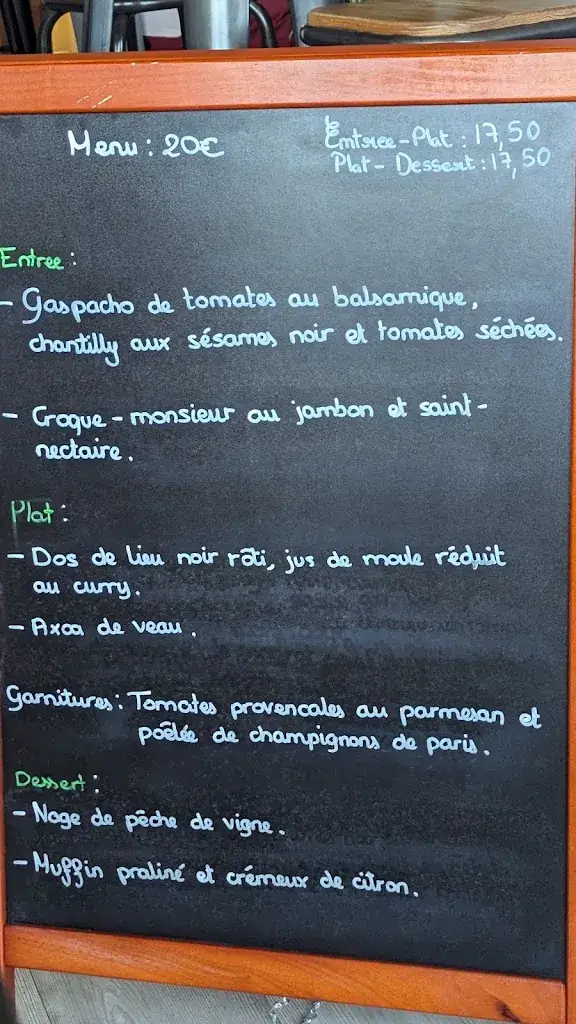 Menu : 20€
Entree - Plat : 17,50
Plat - Dessert : 17,50
Entree :
- Gaspacho de tomates au balsamique,
chantilly aux sésames noir et tomates séchées.
- Croque - monsieur au jambon et saint-
nectaire.
Plat :
- Dos de lieu noir rôti, jus de moule réduit
au curry.
- Axoa de veau.
Garnitures : Tomates provencales au parmesan et
poêlée de champignons de paris.
Dessert :
- Nage de pêche de vigne.
- Muffin praliné et crémeux de citron.